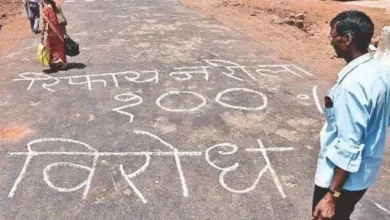 रिफायनरीला
१०० %
विरोध